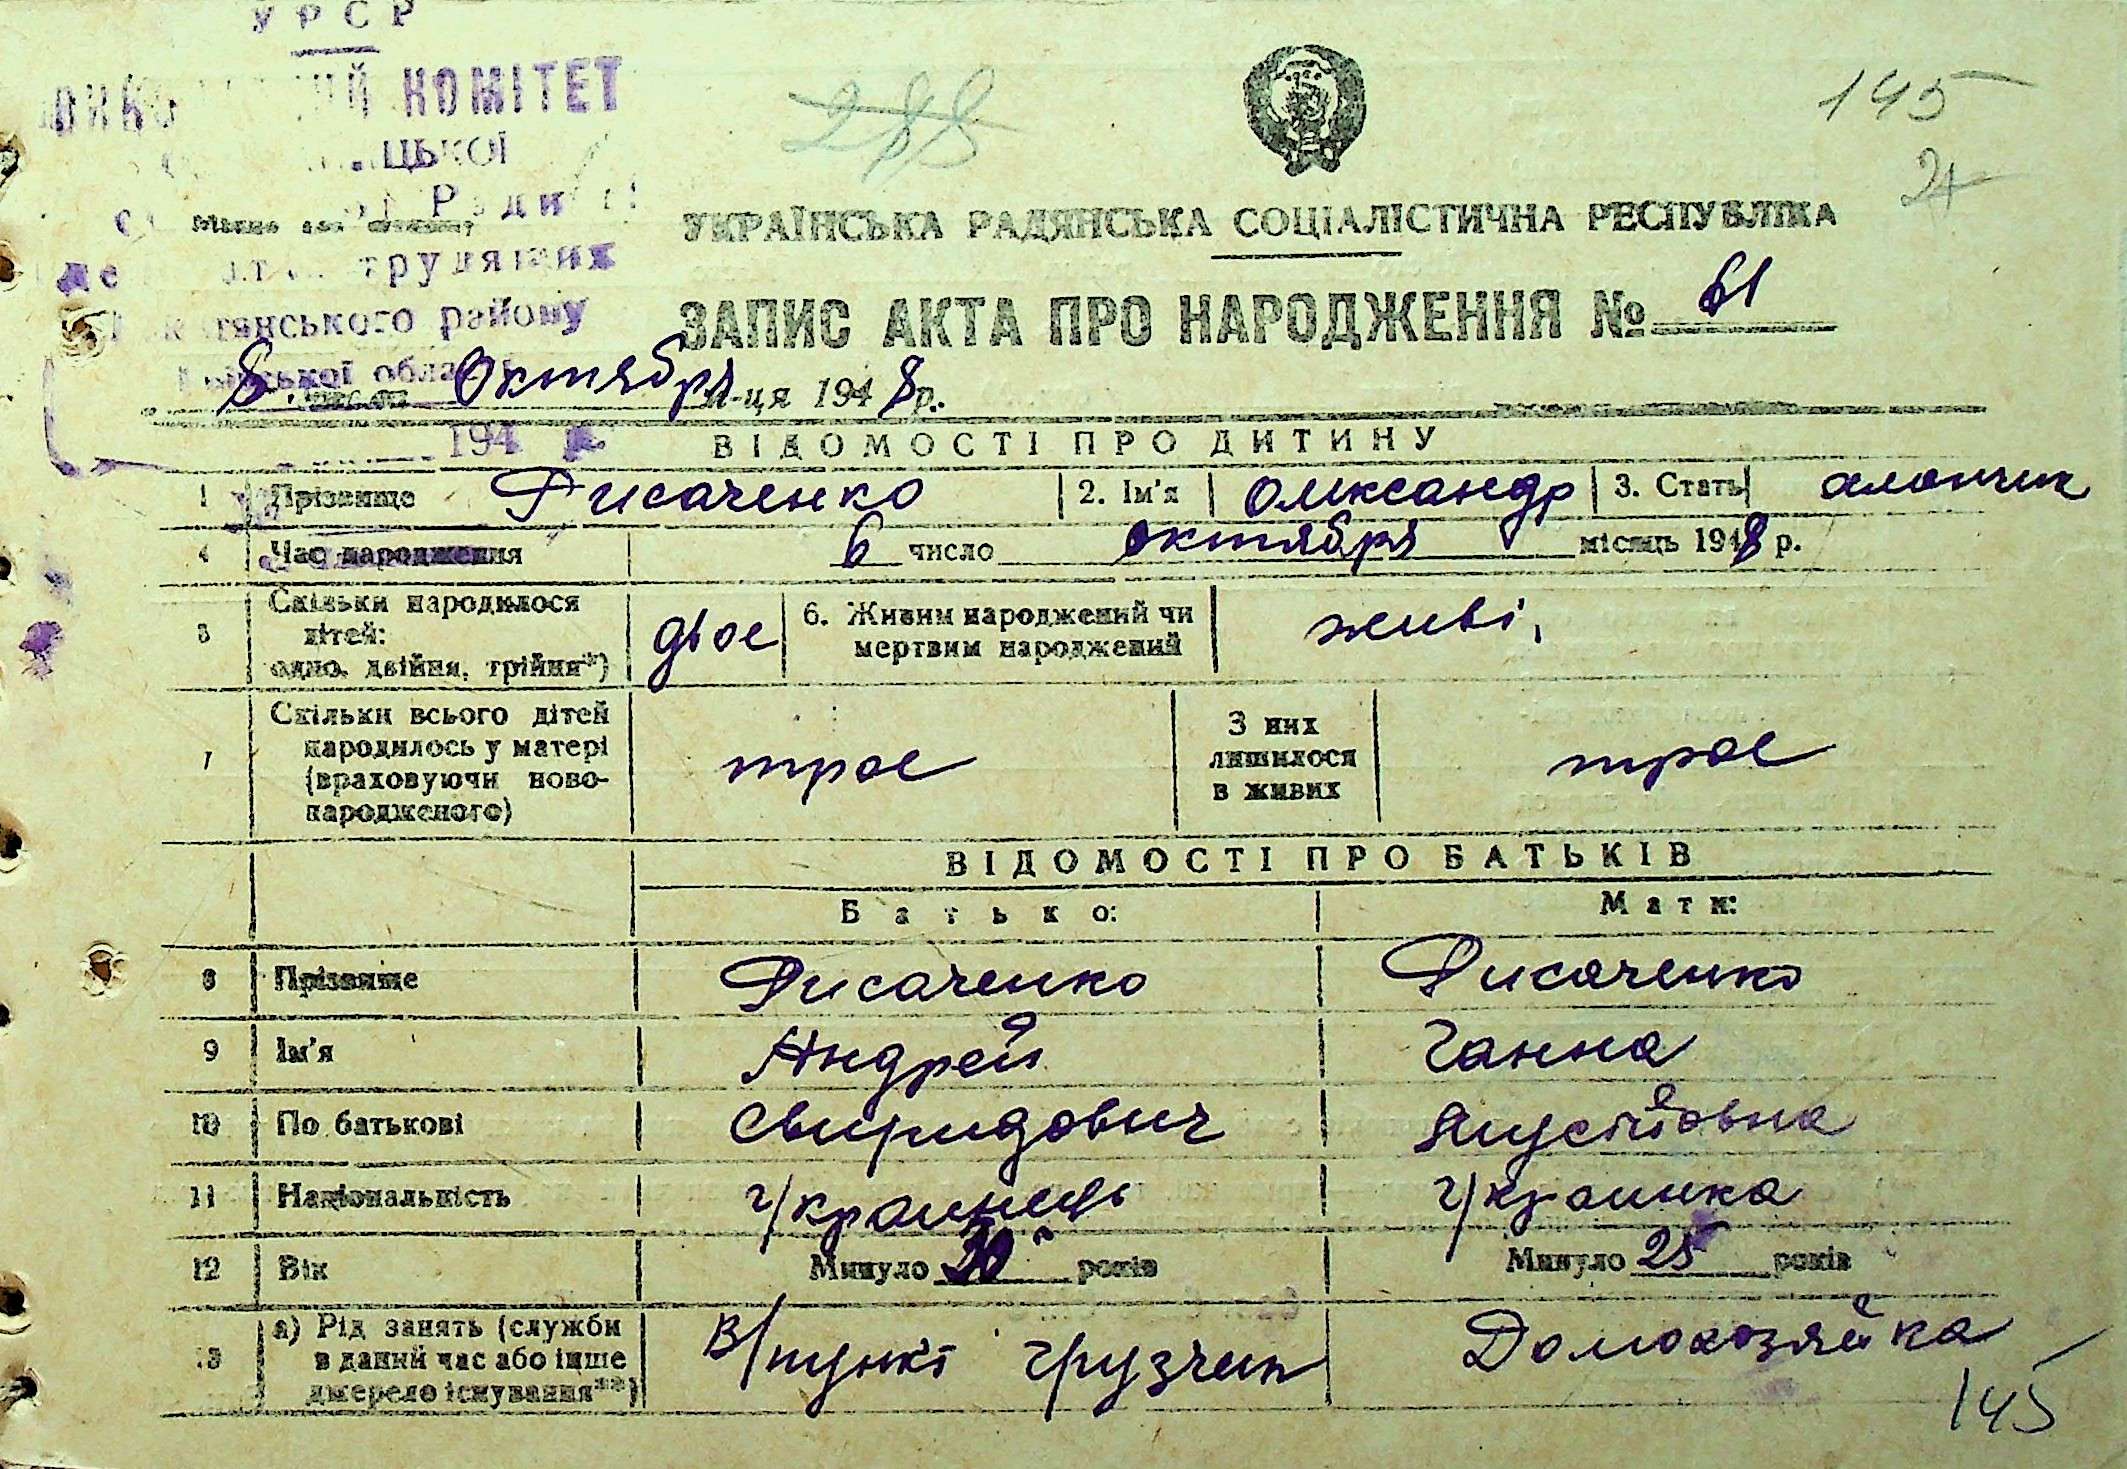 УРСР
КОМІТЕТ
трудящих
району
288
145
УКРАЇНСЬКА РАДЯНСЬКА СОЦІАЛІСТИЧНА РЕСПУБЛІКА
ЗАПИС АКТА ПРО НАРОДЖЕННЯ № 61
8 Октября м-ця 1948 р.
194
ВІДОМОСТІ ПРО ДИТИНУ
1 Прізвище Рисаченко 2. Ім'я Олександр 3. Стать
4 Час народження 6 число октября місяць 1948 р.
5 Скільки народилося дітей: одно, двійня, трійня*) двое 6. Живим народжений чи мертвим народжений живі,
7 Скільки всього дітей народилось у матері (враховуючи новонародженого) трое З них лишилося в живих трое
ВІДОМОСТІ ПРО БАТЬКІВ
Батько: Мати:
8 Прізвище Рисаченко Рисаченко
9 Ім'я Андрей Ганна
10 По батькові Свиридович
11 Національність Украинець Украинка
12 Вік Минуло 30 років Минуло 25 років
13 а) Рід занять (служби в даний час або інше джерело існування**) В/пункт грузчик Домохозяйка
145